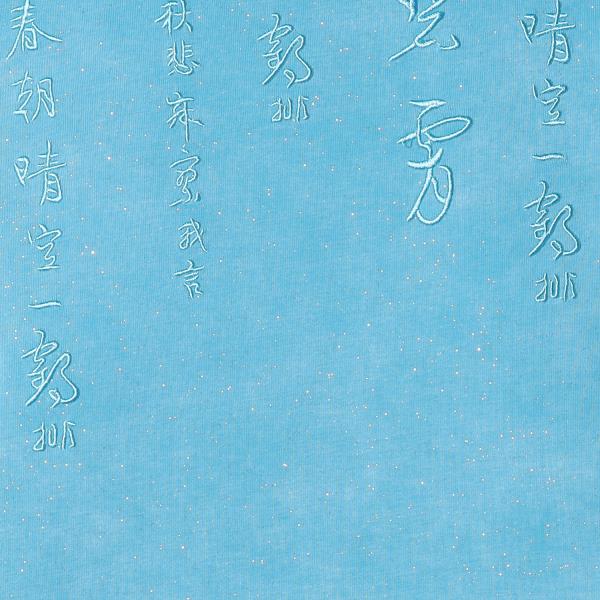 晴空一鹤排
鹤排
秋悲寂寥我言
春朝晴空一鹤排